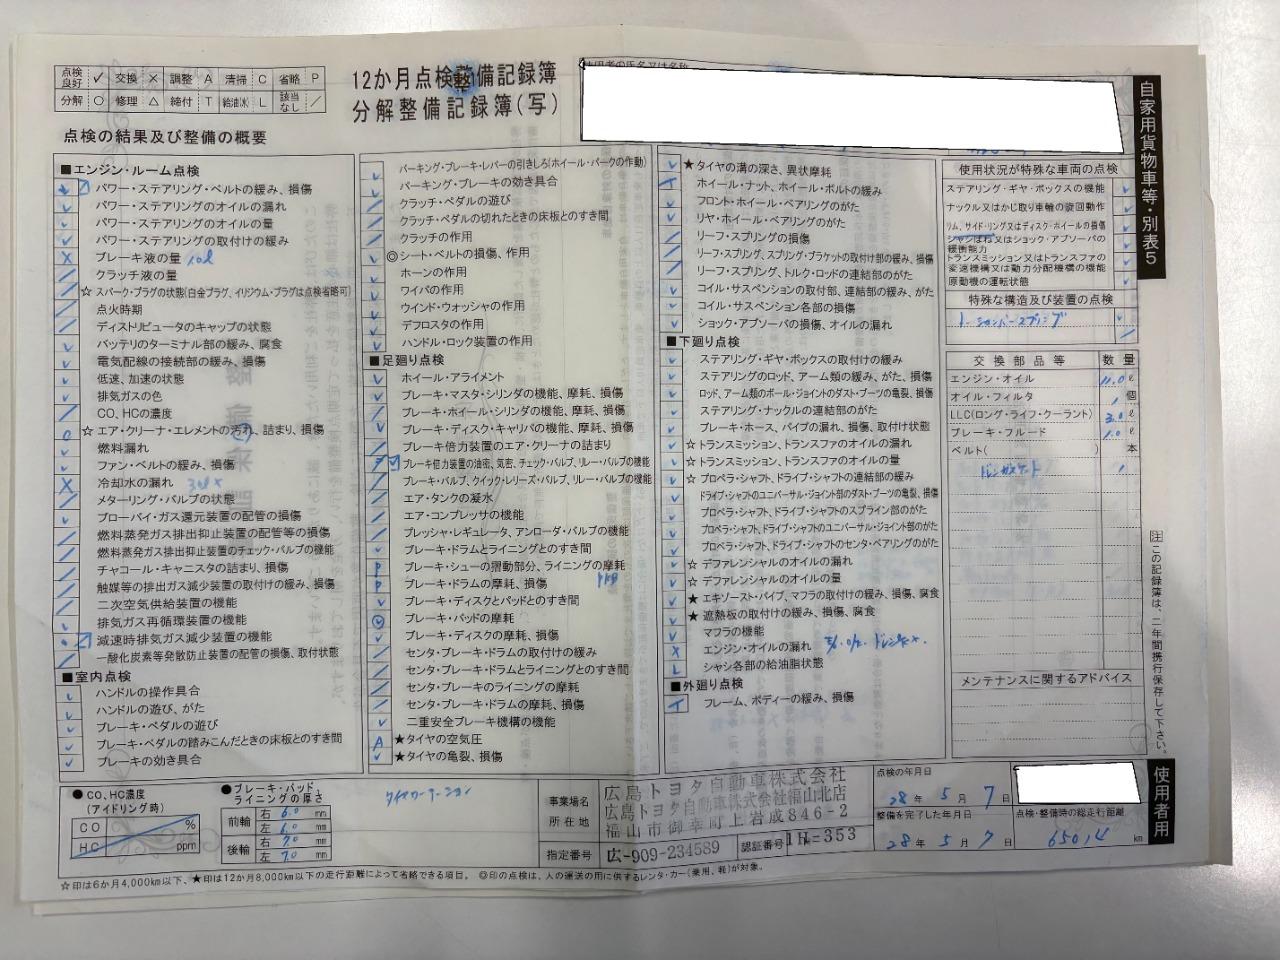 点検良好 ✓ 交換 × 調整 A 清掃 C 省略 P
分解 ○ 修理 △ 締付 T 給油(水) L 該当なし ／
12か月点検整備記録簿
分解整備記録簿(写)
使用者の氏名又は名称
自家用貨物車等・別表5
点検の結果及び整備の概要
■エンジン・ルーム点検
パワー・ステアリング・ベルトの緩み、損傷
パワー・ステアリングのオイルの漏れ
パワー・ステアリングのオイルの量
パワー・ステアリングの取付けの緩み
ブレーキ液の量 1.0ℓ
クラッチ液の量
☆スパーク・プラグの状態(白金プラグ、イリジウム・プラグは点検省略可)
点火時期
ディストリビュータのキャップの状態
バッテリのターミナル部の緩み、腐食
電気配線の接続部の緩み、損傷
低速、加速の状態
排気ガスの色
CO、HCの濃度
☆エア・クリーナ・エレメントの汚れ、詰まり、損傷
燃料漏れ
ファン・ベルトの緩み、損傷
冷却水の漏れ
メターリング・バルブの状態
ブローバイ・ガス還元装置の配管の損傷
燃料蒸発ガス排出抑止装置の配管等の損傷
燃料蒸発ガス排出抑止装置のチェック・バルブの機能
チャコール・キャニスタの詰まり、損傷
触媒等の排出ガス減少装置の取付けの緩み、損傷
二次空気供給装置の機能
排気ガス再循環装置の機能
減速時排気ガス減少装置の機能
一酸化炭素等発散防止装置の配管の損傷、取付状態
■室内点検
ハンドルの操作具合
ハンドルの遊び、がた
ブレーキ・ペダルの遊び
ブレーキ・ペダルの踏みこんだときの床板とのすき間
ブレーキの効き具合
パーキング・ブレーキ・レバーの引きしろ(ホイール・パークの作動)
パーキング・ブレーキの効き具合
クラッチ・ペダルの遊び
クラッチ・ペダルの切れたときの床板とのすき間
クラッチの作用
◎シート・ベルトの損傷、作用
ホーンの作用
ワイパの作用
ウインド・ウォッシャの作用
デフロスタの作用
ハンドル・ロック装置の作用
■足廻り点検
ホイール・アライメント
ブレーキ・マスタ・シリンダの機能、摩耗、損傷
ブレーキ・ホイール・シリンダの機能、摩耗、損傷
ブレーキ・ディスク・キャリパの機能、摩耗、損傷
ブレーキ倍力装置のエア・クリーナの詰まり
ブレーキ倍力装置の油密、気密、チェック・バルブ、リレー・バルブの機能
ブレーキ・バルブ、クイック・レリーズ・バルブ、リレー・バルブの機能
エア・タンクの凝水
エア・コンプレッサの機能
プレッシャ・レギュレータ、アンローダ・バルブの機能
ブレーキ・ドラムとライニングとのすき間
ブレーキ・シューの摺動部分、ライニングの摩耗
ブレーキ・ドラムの摩耗、損傷
ブレーキ・ディスクとパッドとのすき間
ブレーキ・パッドの摩耗
ブレーキ・ディスクの摩耗、損傷
センタ・ブレーキ・ドラムの取付の緩み
センタ・ブレーキ・ドラムとライニングとのすき間
センタ・ブレーキのライニングの摩耗
センタ・ブレーキ・ドラムの摩耗、損傷
二重安全ブレーキ機構の機能
★タイヤの空気圧
★タイヤの亀裂、損傷
★タイヤの溝の深さ、異状摩耗
ホイール・ナット、ホイール・ボルトの緩み
フロント・ホイール・ベアリングのがた
リヤ・ホイール・ベアリングのがた
リーフ・スプリングの損傷
リーフ・スプリング、スプリング・ブラケットの取付部の緩み、損傷
リーフ・スプリング、トルク・ロッドの連結部のがた
コイル・サスペンションの取付部、連結部の緩み、がた
コイル・サスペンション各部の損傷
ショック・アブソーバの損傷、オイルの漏れ
■下廻り点検
ステアリング・ギヤ・ボックスの取付けの緩み
ステアリングのロッド、アーム類の緩み、がた、損傷
ロッド、アーム類のボール・ジョイントのダスト・ブーツの亀裂、損傷
ステアリング・ナックルの連結部のがた
ブレーキ・ホース、パイプの漏れ、損傷、取付け状態
☆トランスミッション、トランスファのオイルの漏れ
☆トランスミッション、トランスファのオイルの量
☆プロペラ・シャフト、ドライブ・シャフトの連結部の緩み
ドライブ・シャフトのユニバーサル・ジョイント部のダスト・ブーツの亀裂、損傷
プロペラ・シャフト、ドライブ・シャフトのスプライン部のがた
プロペラ・シャフト、ドライブ・シャフトのユニバーサル・ジョイント部のがた
プロペラ・シャフト、ドライブ・シャフトのセンタ・ベアリングのがた
☆デファレンシャルのオイルの漏れ
☆デファレンシャルのオイルの量
★エキゾースト・パイプ、マフラの取付けの緩み、損傷、腐食
★遮熱板の取付けの緩み、損傷、腐食
マフラの機能
エンジン・オイルの漏れ
シャシ各部の給油脂状態
■外廻り点検
フレーム、ボディーの緩み、損傷
使用状況が特殊な車両の点検
ステアリング・ギヤ・ボックスの機能
ナックル又はかじ取り車輪の旋回動作
リム、サイド・リング又はディスク・ホイールの損傷
シャシばね又はショック・アブソーバの緩衝能力
トランスミッション又はトランスファの変速機構又は動力分配機構の機能
原動機の運転状態
特殊な構造及び装置の点検
トーションバースプリング
交換部品等 数量
エンジン・オイル 11.0 ℓ
オイル・フィルタ 1 個
LLC(ロング・ライフ・クーラント) 3.0 ℓ
ブレーキ・フルード 1.0 ℓ
ベルト( ) 本
ドレンガスケット 1
メンテナンスに関するアドバイス
注 この記録簿は、二年間携行保存して下さい。
使用者用
●CO、HC濃度
(アイドリング時)
CO %
HC ppm
●ブレーキ・パッド、
ライニングの厚さ
前輪 右 6.0 mm
左 6.0 mm
後輪 右 7.0 mm
左 7.0 mm
タイヤローテーション
事業場名
所在地
広島トヨタ自動車株式会社
広島トヨタ自動車株式会社福山北店
福山市御幸町上岩成846-2
指定番号 広-909-234589 認証番号 1H-353
点検の年月日
28年 5月 7日
整備を完了した年月日
28年 5月 7日
点検・整備時の総走行距離
km
☆印は6か月4,000km以下、★印は12か月8,000km以下の走行距離によって省略できる項目。 ◎印の点検は、人の運送の用に供するレンタ・カー(乗用、軽)が対象。